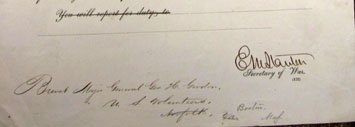 You will report for duty to
E M Stanton
Secretary of War.
Brevet Major General Geo. H. Gordon,
U S Volunteers,
Norfolk,
Boston